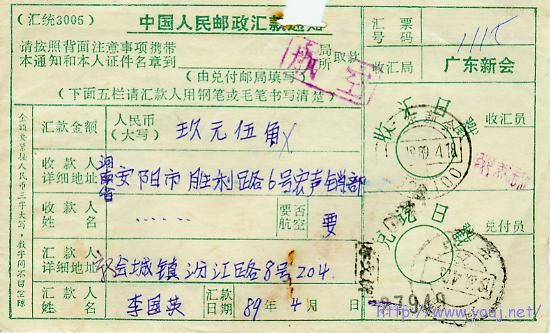 (汇统3005)
中国人民邮政汇款通知
请按照背面注意事项携带
本通知和本人证件名章到 局所 取款
(由兑付邮局填写)
航空
汇票号码 1115
收汇局 广东新会
(下面五栏请汇款人用钢笔或毛笔书写清楚)
汇款金额 人民币(大写) 玖元伍角
收款人详细地址 河南省安阳市胜利路6号宏声销部
收款人姓名 …… 要否航空 要
汇款人详细地址 会城镇汾江路8号204
汇款人姓名 李国英 汇款日期 89年4月 日
收汇日戳
收汇员
1989.4.18
兑讫日戳
兑付员
27948
http://www.youj.net/